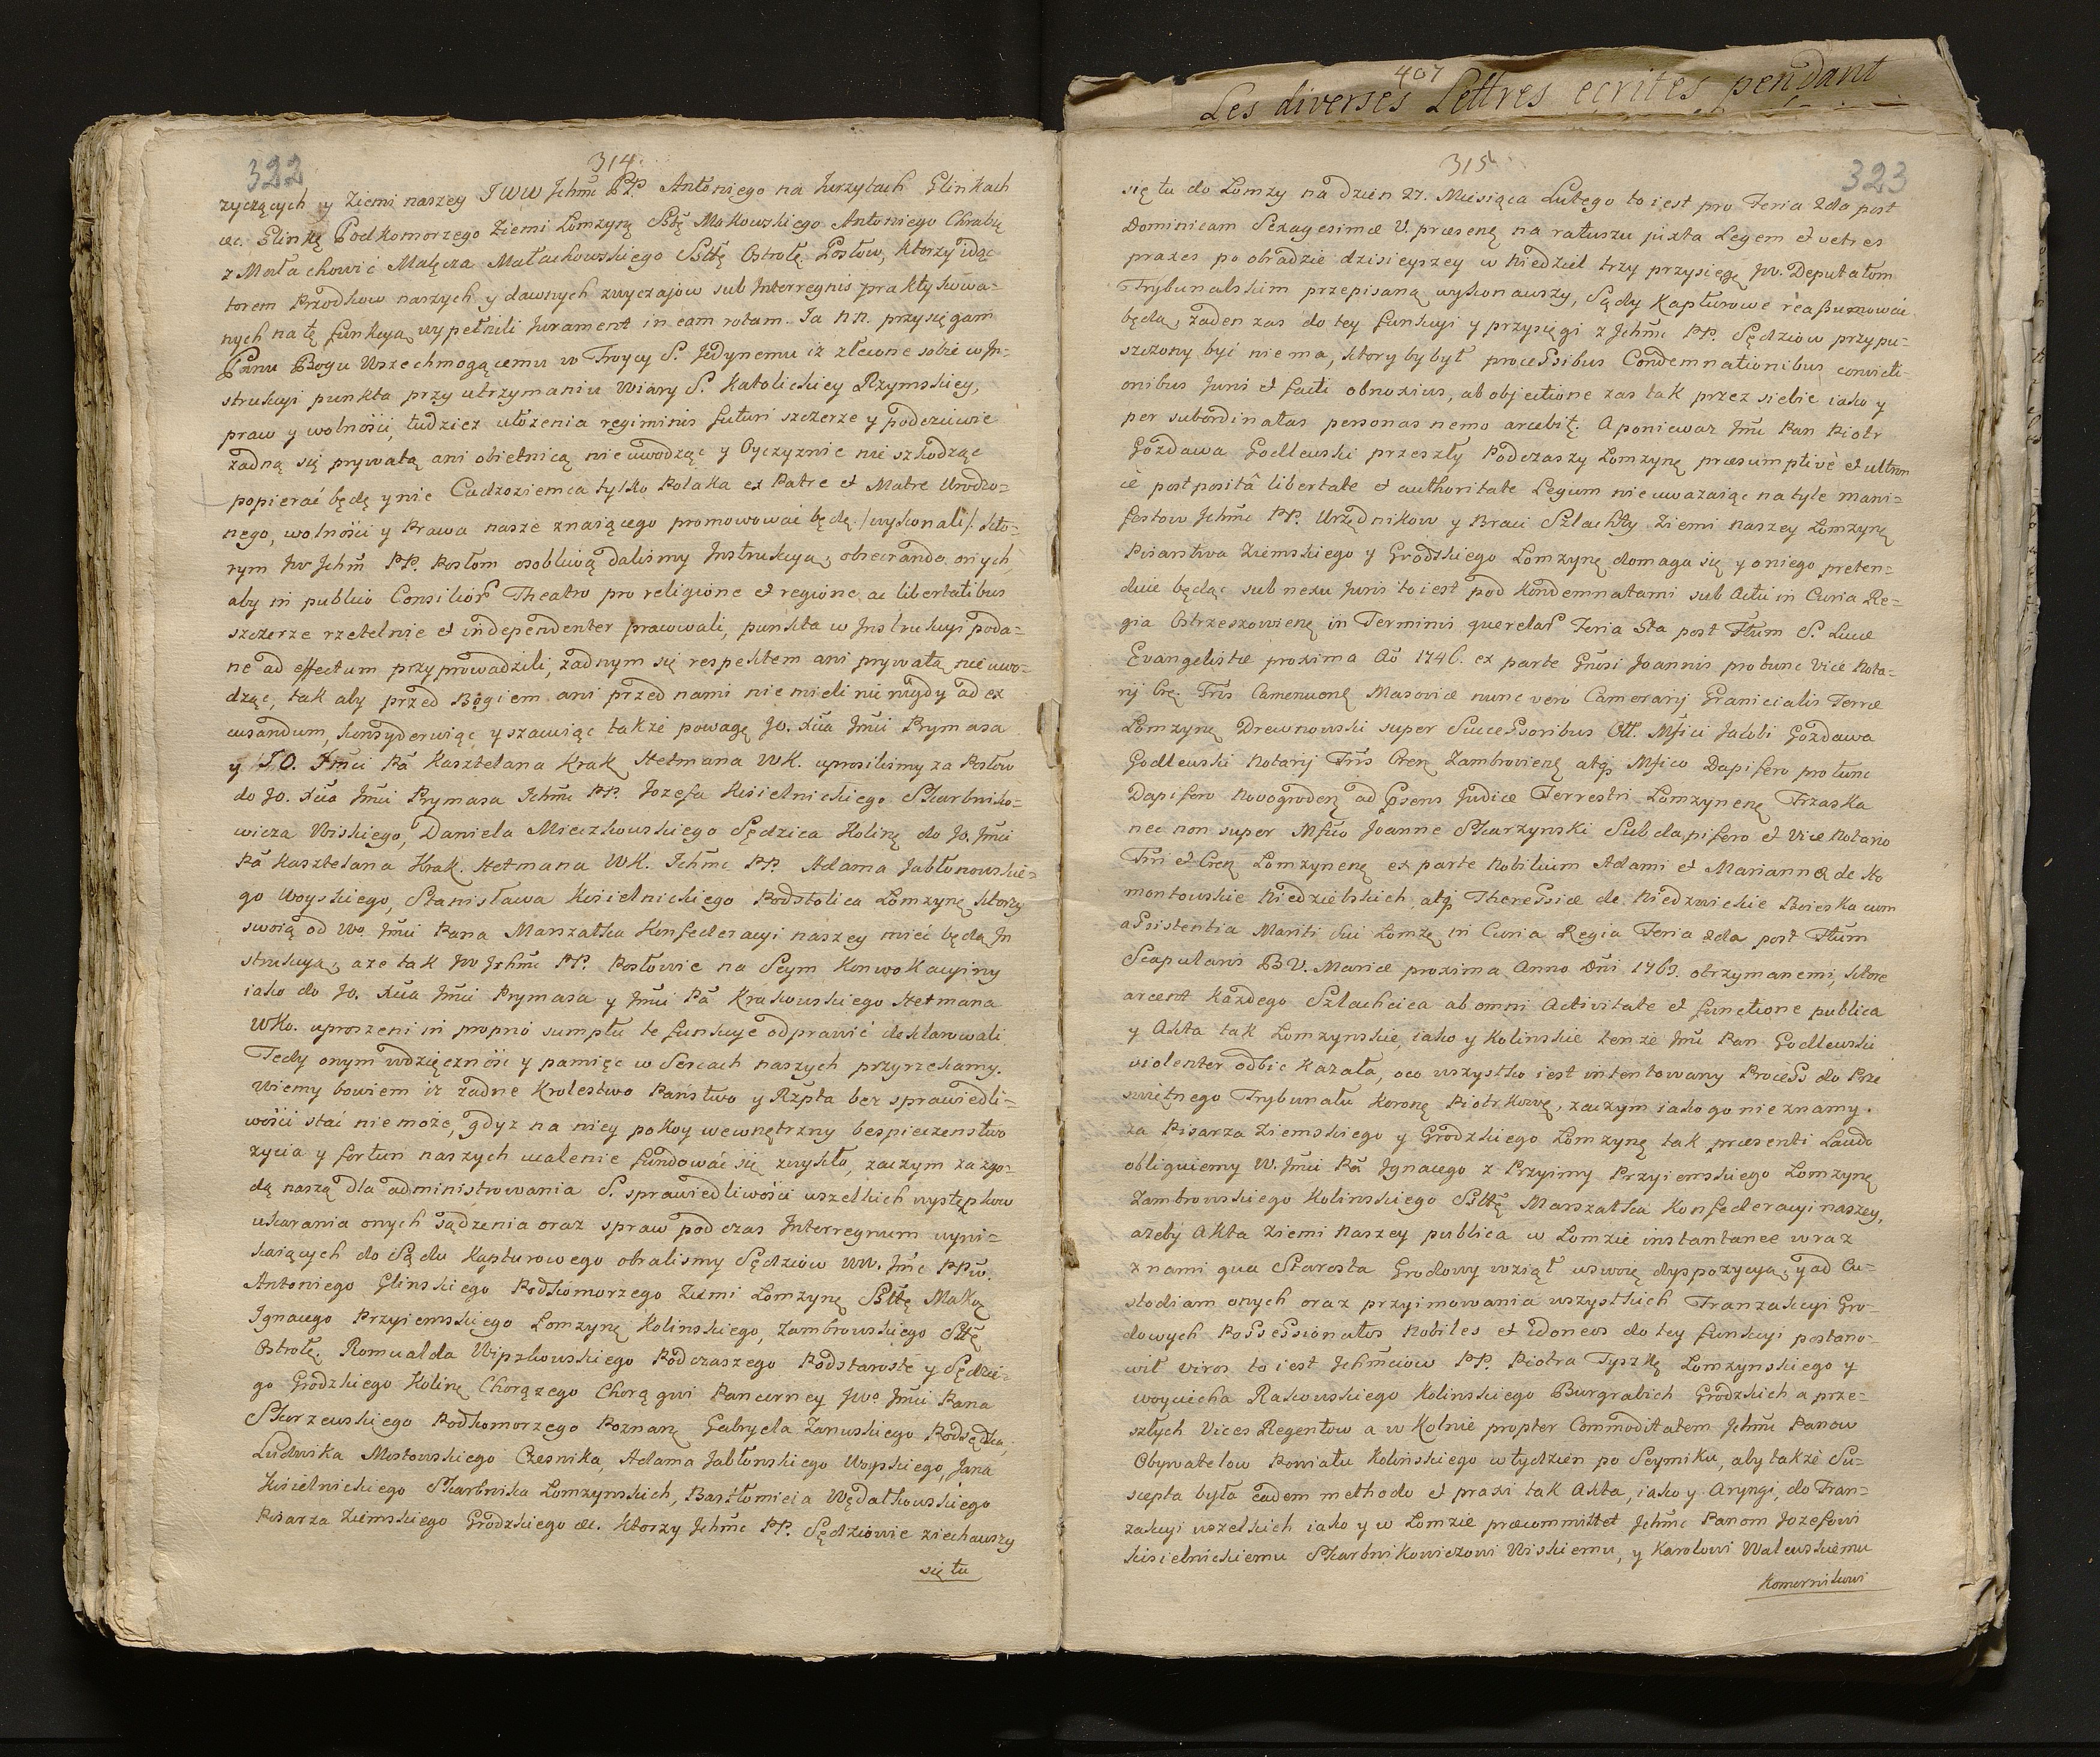 322
314.
zyczących y Ziemi naszey J WW Jchmć PP. Antoniego na Jurzytach Glinkach
&c. Glinkę Podkomorzego Ziemi Łomzynę Sttę Makowskiego Antoniego Chrabię
z Małachowic Małęcza Małachowskiego Stttę Ostrołę Posłow, ktorzy idąc
torem Przodkow naszych y dawnych zwyczajow sub Interregnis praktykowa-
nych na tę funkcyą wypełnili Jurament in eam rotam. Ja NN. przysięgam
Panu Bogu Wszechmogącemu w Troycy S. Jedynemu iż zlecone sobie w In-
strukcyi punkta przy utrzymaniu Wiary S. Katolickiey Rzymskiey,
praw y wolności, tudziez ułozenia regiminis futuri szczerze y podcziwie
zadną się prywatą ani obietnicą nie uwodząc y Oyczyznie nie szkodząc
popierać będę y nie Cudzoziemca tylko Polaka ex Patre et Matre Urodzo-
nego, wolności y Prawa nasze znaiącego promowować będę. /:wykonali:/. kto-
rym Jw Jchm PP. Posłom osobliwą dalismy Instrukcyą, obsecrando onych,
aby in publico Consilior Theatro pro religione et regione ac libertatibus
szczerze rzetelnie et independenter pracowali, punkta w Instrukcyi poda-
ne ad effectum przyprowadzili, zadnym się respektem ani prywatą nie uwo-
dząc, tak aby przed Bogiem ani przed nami nie mieli nic nigdy ad ex
cusandum, konsyderuiąc y szacuiąc także powagę Jo. Xcia Jmci Prymasa
y JO. Jmci Pa Kasztelana Krak Hetmana WK. uprosilismy za Posłow
do Jo. Xcia Jmci Prymasa Jchmc PP. Jozefa Kisielnickiego Skarbniko-
wicza Wiskiego, Daniela Mieczkowskiego Sędzica Kolinę do Jo. Jmci
Pa Kasztelana Krak. Hetmana WK. Jchmc PP. Adama Jabłonowskie-
go Woyskiego, Stanisława Kisielnickiego Podstolica Łomzynę ktorzy
swoią od Wo Jmci Pana Marszałka Konfederacyi naszey mieć będą In
strukcyą, a ze tak Jw Jchmc PP. Posłowie na Seym Konwokacyiny
iako do Jo. Xcia Jmci Prymasa y Jmci Pa Krakowskiego Hetmana
WKo. uproszeni in proprio sumptu te funkcye odprawić deklarowali
Tedy onym wdzięcznośc y pamięc w Sercach naszych przyrzekamy.
Wiemy bowiem iż żadne Krolestwo Państwo y Rzpta bez sprawiedli-
wości stać nie może, gdyz na niey pokoy wewnętrzny bespieczenstwo
zycia y fortun naszych ucalenie fundować się zwykło, zaczym za zgo-
dą naszą dla administrowania S. sprawiedliwości wszelkich występkow
ukarania onych sądzenia oraz spraw podczas Interregnum wyni-
kaiących do Sądu Kapturowego obralismy Sędziow WW. Jmc PPw.
Antoniego Glinskiego Podkomorzego Ziemi Łomzynę Stttę Makę
Ignacego Przyiemskiego Łomzynę Kolinskiego, Zambrowskiego Sttę
Ostrołę. Romualda Wipzkowskiego Podczaszego Podstaroste y Sędzie-
go Grodzkiego Kolinę Chorązego Chorągwi Pancerney Jwo Jmci Pana
Skorzewskiego Podkomorzego Poznanę Gabryela Zanuskiego Podsędka,
Ludwika Mostowskiego Czesnika, Adama Jabłonskiego Woyskiego, Jana
Kisielnickiego Skarbnika Łomzynskich, Bartłomieia Wędałkowskiego
Pisarza Ziemskiego Grodzkiego &c. Ktorzy Jchmc PP. Sędziowie ziechawszy
się tu
407
Les diverses Lettres ecrites pendant
315
323
się tu do Łomzy na dzien 27. Miesiąca Lutego to iest pro Feria 2da post
Dominicam Sexagesimæ V. præsenę na ratuszu juxta Legem et vetres
praxes po obradzie dzisieyszey w Niedziel trzy przysięgę Jw. Deputatom
Trybunalskim przepisaną wykonawszy, Sądy Kapturowe reassumować
będą, zaden zas do tey funkcyi y przysięgi z Jchmc PP. Sędziow przypu-
szczony być nie ma, ktory by był processibus Condemnationibus convicti-
onibus Juris et facti obnoxius, ab objectione zas tak przez siebie iako y
per subordinatas personas nemo arcebitę. A poniewaz Jmc Pan Piotr
Gozdawa Godlewski przeszły Podczaszy Łomzynę præsumptivè et ultron
ie postposità libertate et authoritate Legum nie uwazaiąc na tyle mani-
festow Jchmc PP. Urzędnikow y Braci Szlachty Ziemi naszey Łomzynę
Pisarstwa Ziemskiego y Grodzkiego Łomzynę domaga się y o niego preten-
duie będąc sub nexu Juris to iest pod Kondemnatami sub Actu in Curia Re-
gia Ostrzeszowienę in Terminis querelar Feria 5ta post Ftum S. Lucæ
Evangelistæ proxima Ao 1746. ex parte Gnosi Joannis pro tunc Vice Nota-
rij Crę. Tris Camenecenę Masoviæ nunc vero Camerarij Granicialis Terræ
Łomzynę Drewnowski super Successoribus Ott. Mfici Jacobi Gozdawa
Godlewski Notarij Tris Cren Zambrovienę atq Mfico Dapifero pro tunc
Dapifero Novogrodenę ad Psens Judice Terrestri Łomzynenę Trzaska
nec non super Mfico Joanne Skarzynski Subdapifero et Vice Notario
Tri et Crenę Łomzynenę ex parte Nobilium Adami et Mariannæ de Ko
montowskie Niedzielskich, atq Theressiæ de Niedzwickie Boieska cum
assistentia Mariti sui Łomzę in Curia Regia Feria 2da post Ftum
Scapularis B V. Mariæ proxima Anno Dni 1763. otrzymanemi, ktore
arcent kazdego Szlachcica ab omni Activitate et functione publica
y Akta tak Łomzynskie, iako y Kolinskie ten ze Jmc Pan Godlewski
violenter odbic kazał, oco wszystko iest intentowany Process do Prze
swietnego Trybunału Koronę Piotrkowę, zaczym iako go nie znamy.
za Pisarza Ziemskiego y Grodzkiego Łomzynę tak præsenti Laudo
obliguiemy W. Jmci Pa Ignacego z Przyimy Przyiemskiego Łomzynę
Zambrowskiego Kolinskiego Stttę Marszałka Konfederacyi naszey,
azeby Akta Ziemi Naszey publica w Łomzie instantanee wraz
z nami qua Starosta Grodowy wziął w swoię dyspozycyą, y ad Cu-
stodiam onych oraz przyimowania wszystkich Tranzakcyi Gro-
dowych Possessionatos Nobiles et idoneos do tey funkcyi postano-
wił viros to iest Jchmciow PP. Piotra Tyszkę Łomzynskiego y
Woyciecha Rakowskiego Kolinskiego Burgrabich Grodzkich a prze-
szłych Vices Regentow a w Kolnie propter Commoditatem Jchmc Panow
Obywatelow Powiatu Kolinskiego w tydzien po Seymiku, aby także Su-
scepta była eadem methodo et praxi tak Akta, iako y Aryngi, do Tran-
zakcyi wszelkich iako y w Łomzie præcommittet Jchmc Panom Jozefowi
Kisielnickiemu Skarbnikowiczowi Wiskiemu, y Karolowi Walewskiemu
Komornikowi